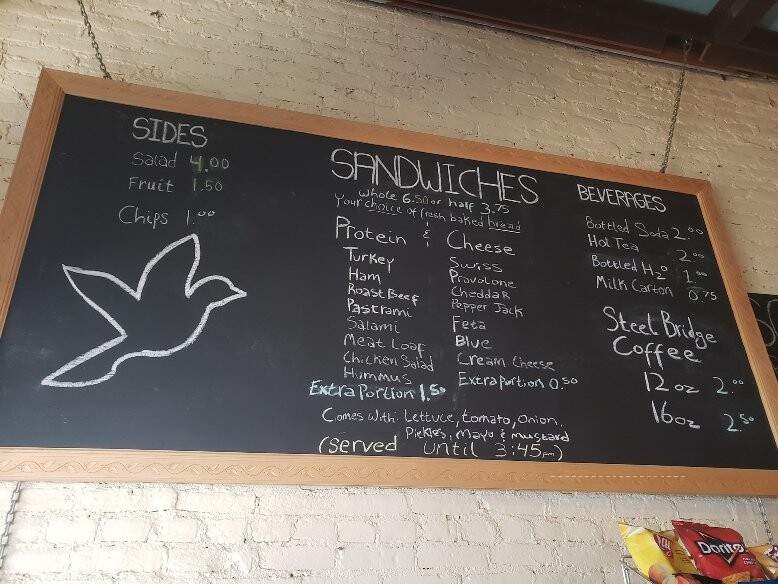 SIDES
Salad 4.00
Fruit 1.50
Chips 1.00
SANDWICHES
Whole 6.50 or half 3.75
Your choice of fresh baked bread
Protein & Cheese
Turkey
Ham
Roast Beef
Pastrami
Salami
Meat Loaf
Chicken Salad
Hummus
Extra Portion 1.50
Swiss
Provolone
Cheddar
Pepper Jack
Feta
Blue
Cream Cheese
Extra Portion 0.50
Comes with: Lettuce, tomato, onion,
Pickles, mayo & mustard
(Served until 3:45pm)
BEVERAGES
Bottled Soda 2.00
Hot Tea 2.00
Bottled H2O 1.00
Milk Carton 0.75
Steel Bridge
Coffee
12 oz 2.00
16oz 2.50
Doritos